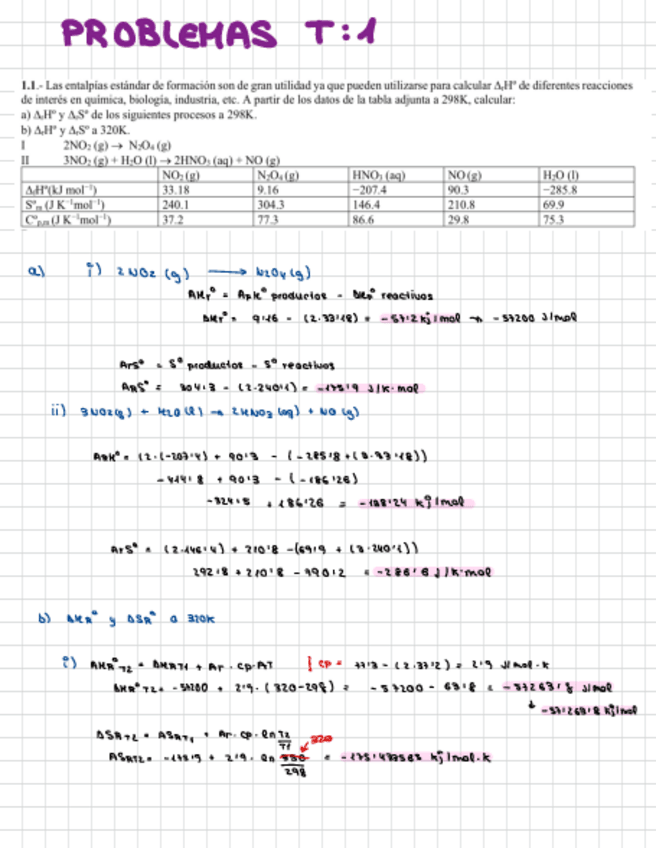 PROBLEMAS T:1
1.1.- Las entalpías estándar de formación son de gran utilidad ya que pueden utilizarse para calcular ΔrHº de diferentes reacciones
de interés en química, biología, industria, etc. A partir de los datos de la tabla adjunta a 298K, calcular:
a) ΔrHº y ΔrSº de los siguientes procesos a 298K.
b) ΔrHº y ΔrSº a 320K.
I 2NO2 (g) → N2O4 (g)
II 3NO2 (g) + H2O (l) → 2HNO3 (aq) + NO (g)
NO2 (g) N2O4 (g) HNO3 (aq) NO (g) H2O (l)
ΔfHº(kJ mol⁻¹) 33.18 9.16 −207.4 90.3 −285.8
Sºm (J K⁻¹mol⁻¹) 240.1 304.3 146.4 210.8 69.9
Cºp,m (J K⁻¹mol⁻¹) 37.2 77.3 86.6 29.8 75.3
a) i) 2NO2 (g) → N2O4 (g)
ΔHrº = productos - reactivos
ΔHrº = 9'16 - (2·33'18) = -57'2 kJ/mol → -57200 J/mol
ΔrSº = Sº productos - Sº reactivos
ΔRSº = 304'3 - (2·240'1) = -175'9 J/K·mol
ii) 3NO2(g) + H2O (l) → 2HNO3 (aq) + NO (g)
ΔRHº = (2·(-207'4) + 90'3 - (-285'8 + (3·33'18))
-414'8 + 90'3 - (-186'26)
-324'5 + 186'26 = -138'24 kJ/mol
ΔrSº = (2·146'4) + 210'8 -(69'9 + (3·240'1))
292'8 + 210'8 - 790'2 = -286'6 J/K·mol
b) ΔHRº y ΔSRº a 320K
i) ΔHRºT2 = ΔHRT1 + Δr·cp·ΔT | cp = 77'3 - (2·37'2) = 2'9 J/mol·K
ΔHRºT2 = -57200 + 2'9·(320-298) = -57200 - 63'8 = -57263'8 J/mol
↓
-57'2638 kJ/mol
ΔSRT2 = ΔSRT1 + Δr·cp·ln T2/T1
320
ΔSRT2 = -175'9 + 2'9·ln /298 = kJ/mol·K